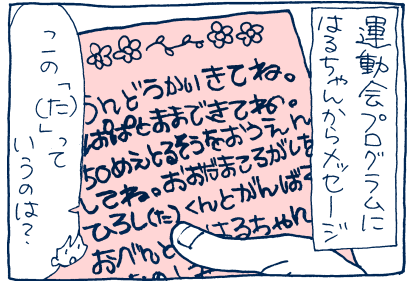 運動会プログラムに
はるちゃんからメッセージ
うんどうかいきてね。
ぱぱとままできてね。
50めえとるそうをおうえん
してね。おおだまころがしを
ひろし(た)くんとがんばく
おべんと
はるちゃん
この「(た)」って
いうのは?